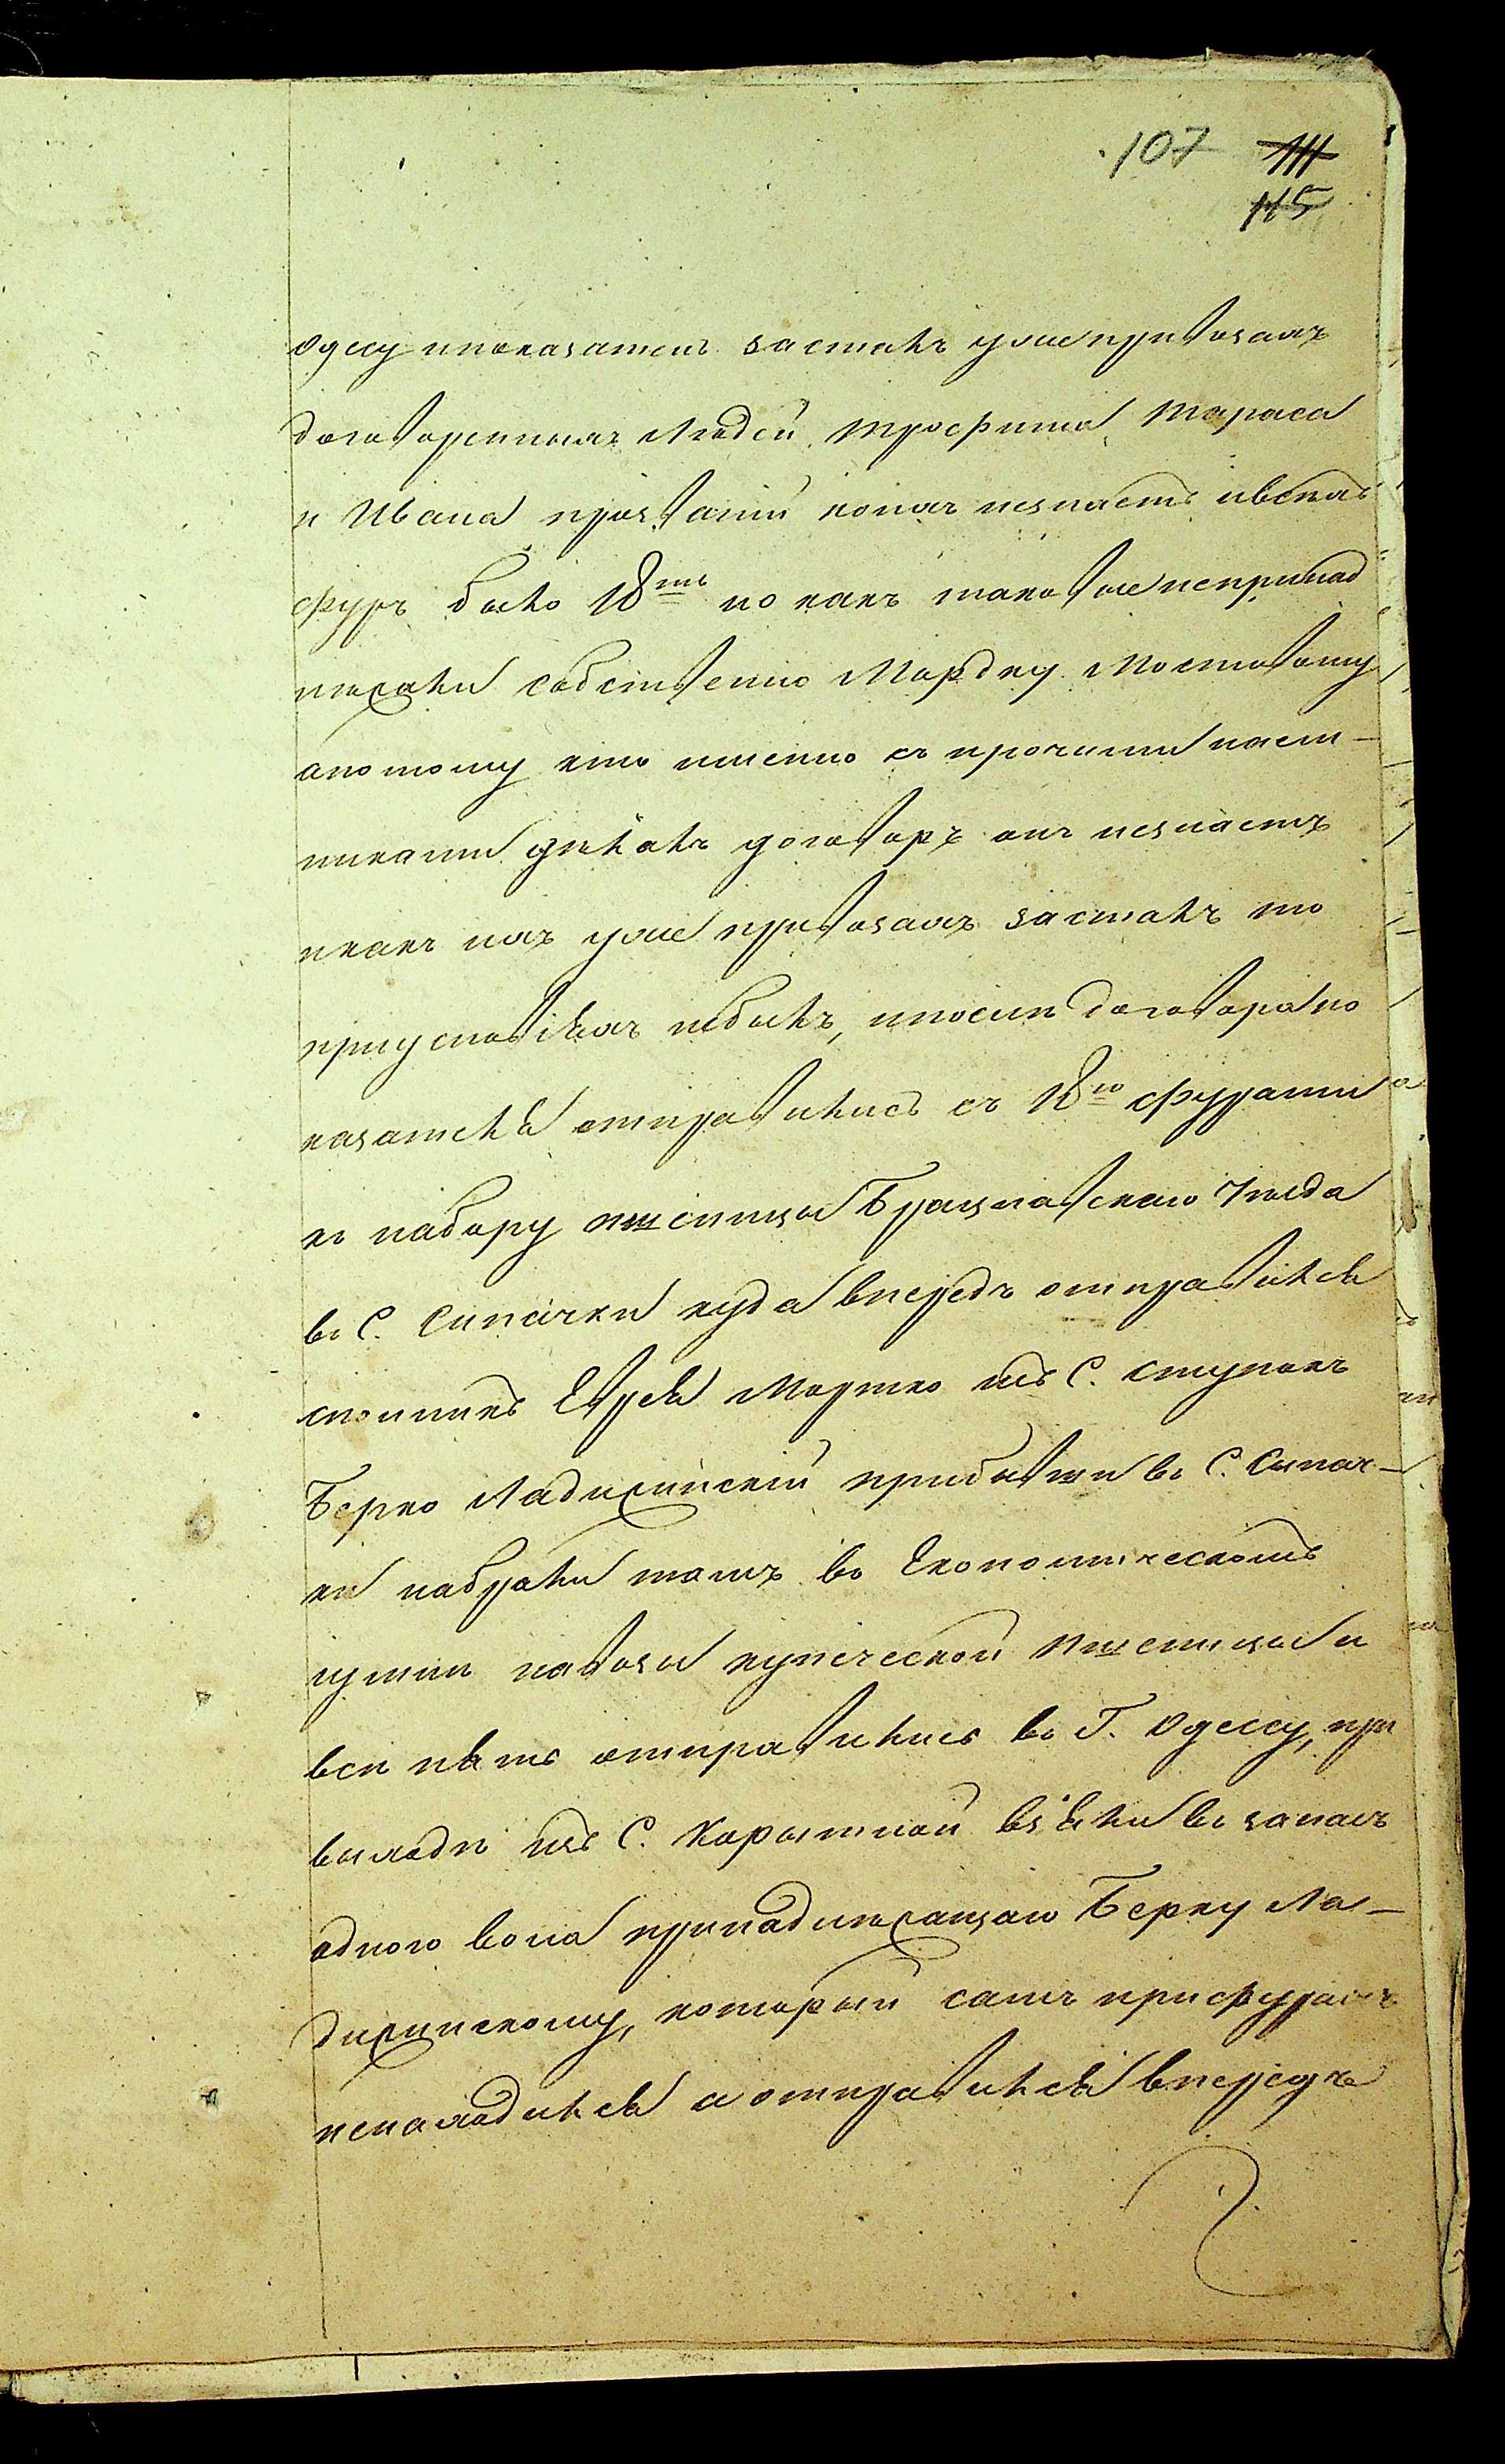 107 111
115
Одессу ипоказатель засталъ уже привозахъ
договоренныхъ Людей Трофима, Тараса
и Ивана прозваній коихъ незнаетъ ивсехъ
фуръ было 18ть но какъ таковые непринад
тлежали собственно Мордку Мостовому
апотому кто именно съ прочими част-
никами дѣлалъ договоръ онъ незнаетъ
икакъ ихъ уже привозахъ засталъ то
приусловіяхъ небылъ, ипосли договора по
казатель отправились съ 18ю фурами
къ набору пшеницы Брацлавскаго Уѣзда
въ С. Сипачки куда впередъ отправился
Еврей Мортко изъ С. Ступокъ
Берко Ладижинскій прибывши въ С. Сыпач-
ки набрали тамъ въ Економическомъ
на возы купеческой Пшеницы и
вси пять отправились въ Г. Одессу, при
выходѣ изъ С. Корытной взяли въ запасъ
одного вола принадлежащаго Берку Ла-
дижинскому, который самъ прифурахъ
ненаходился и отправился впередъ